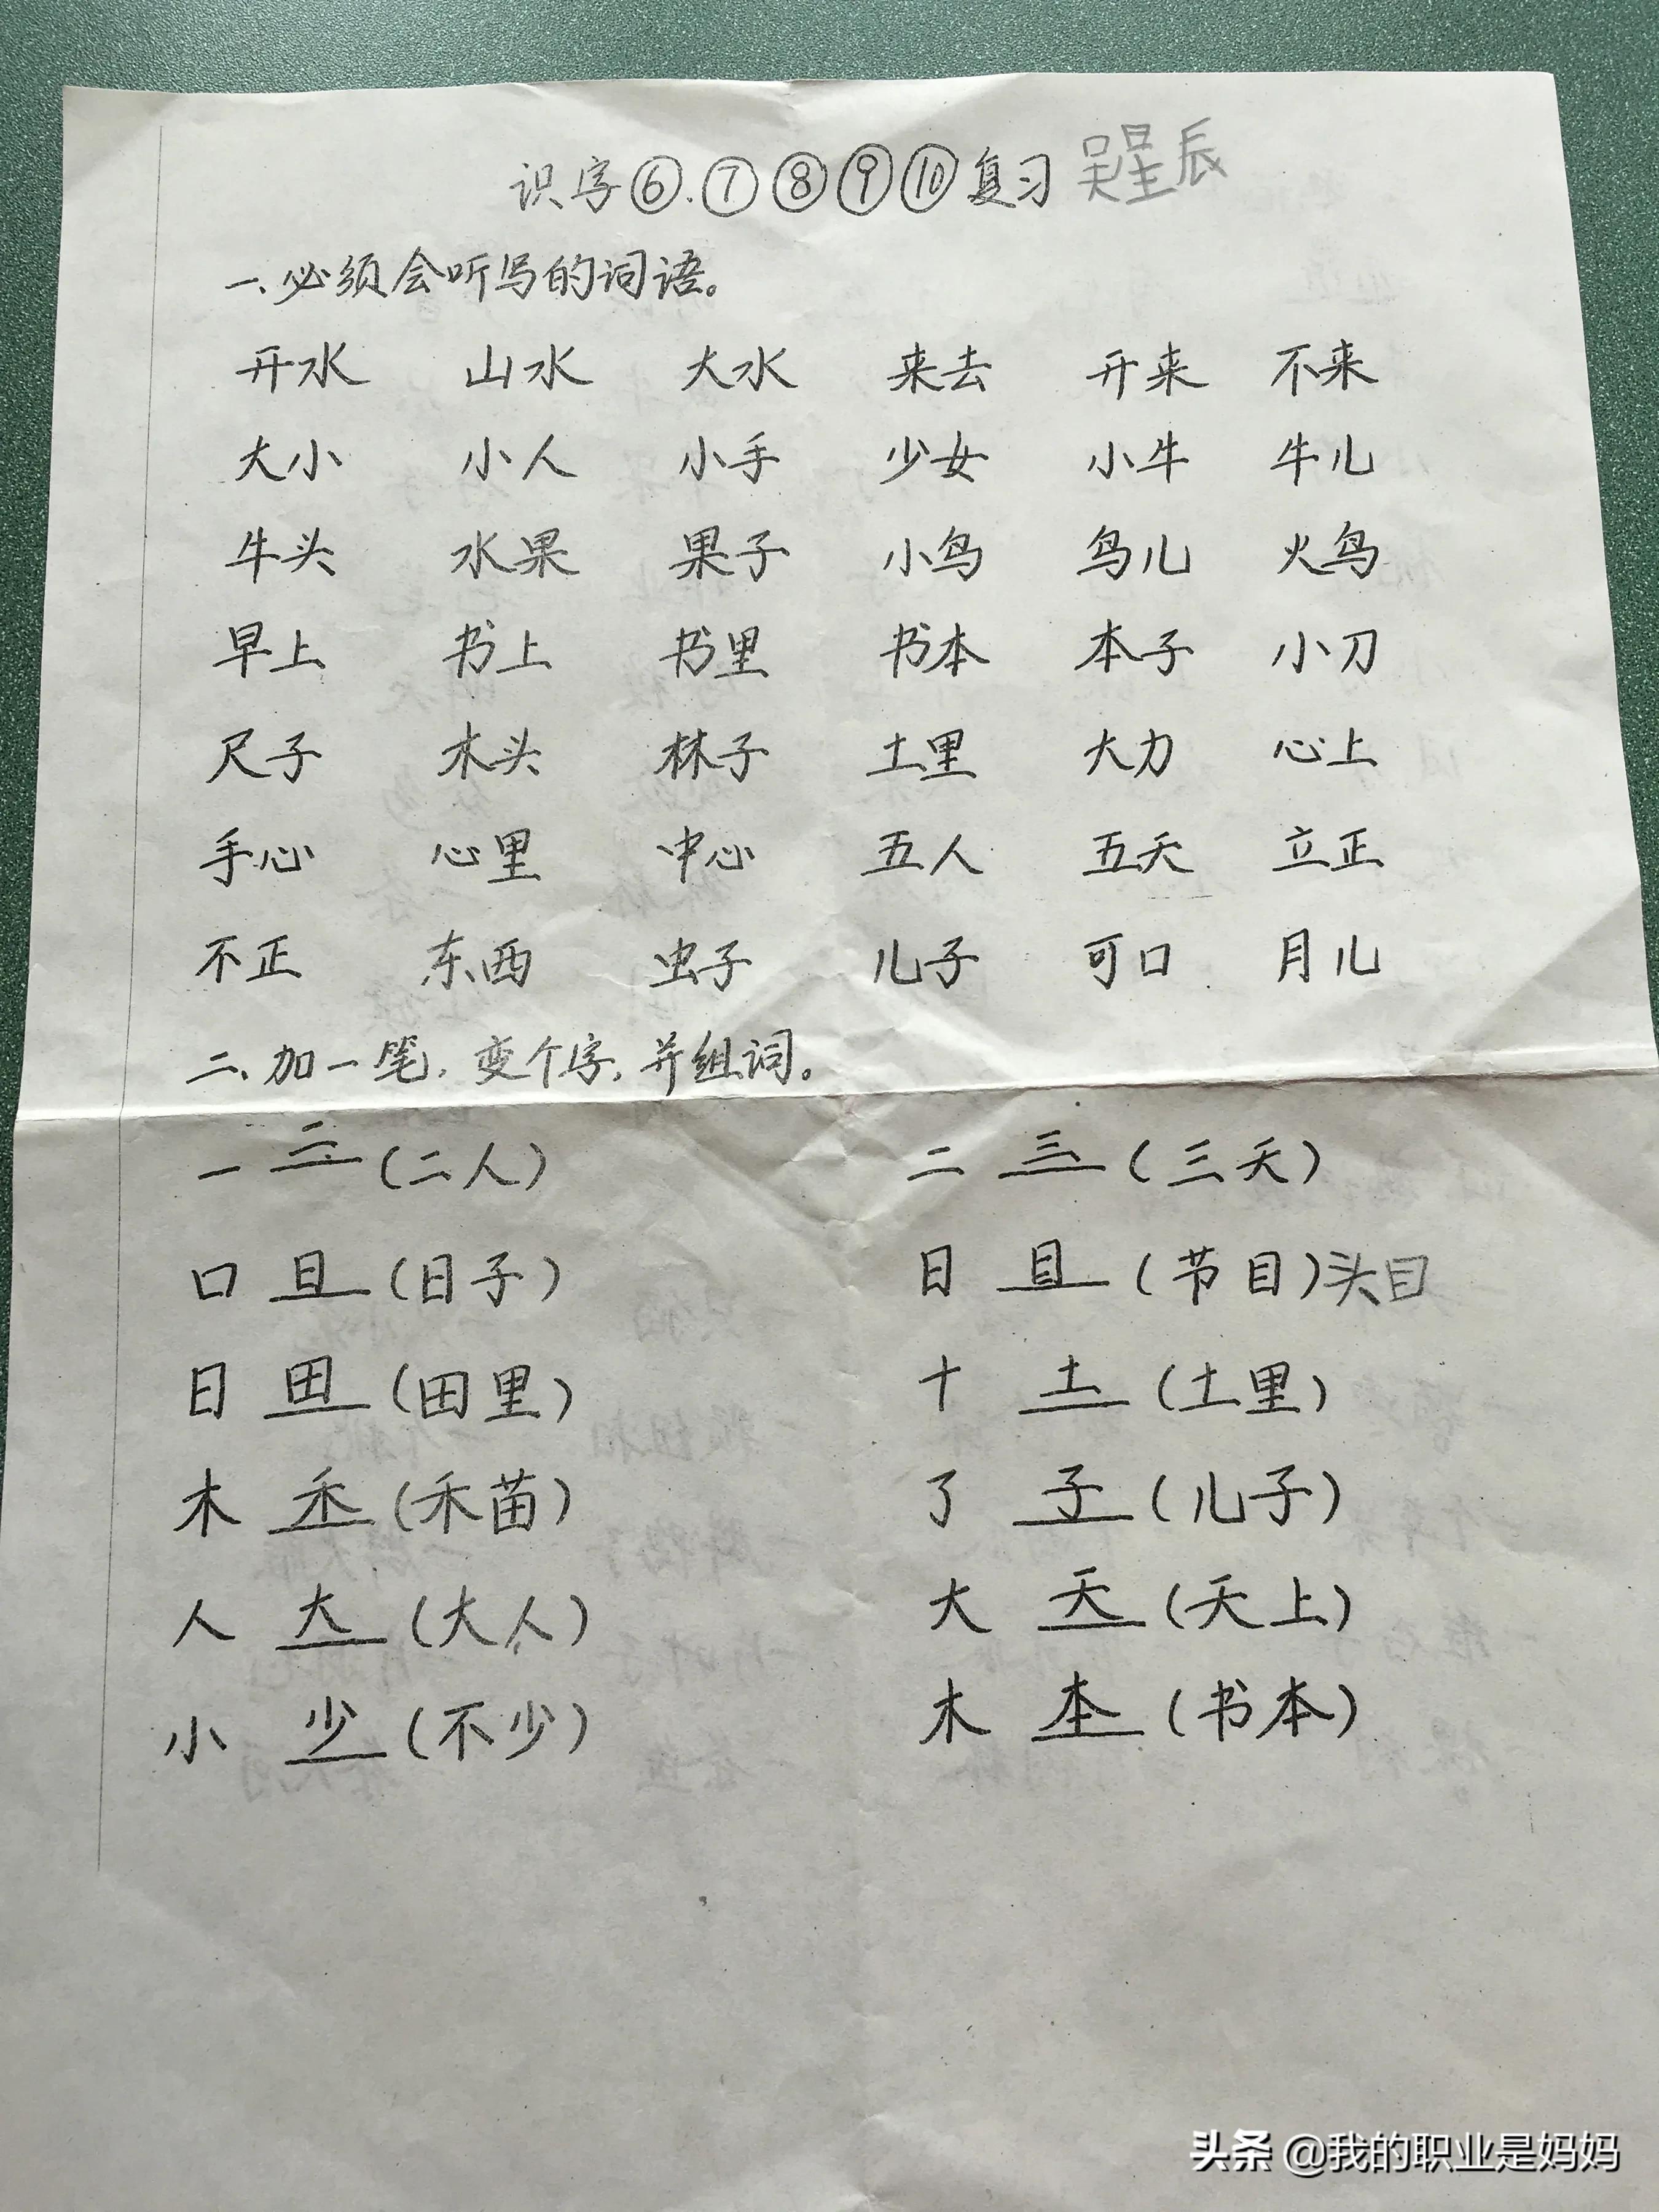 识字⑥.⑦⑧⑨⑩复习 吴星辰
一、必须会听写的词语。
开水 山水 大水 来去 开来 不来
大小 小人 小手 少女 小牛 牛儿
牛头 水果 果子 小鸟 鸟儿 火鸟
早上 书上 书里 书本 本子 小刀
尺子 木头 林子 土里 大力 心上
手心 心里 中心 五人 五天 立正
不正 东西 虫子 儿子 可口 月儿
二、加一笔,变个字,并组词。
一 二 (二人) 二 三 (三天)
口 日 (日子) 日 目 (节目) 头目
日 田 (田里) 十 土 (土里)
木 禾 (禾苗) 了 子 (儿子)
人 大 (大人) 大 天 (天上)
小 少 (不少) 木 本 (书本)
头条 @我的职业是妈妈